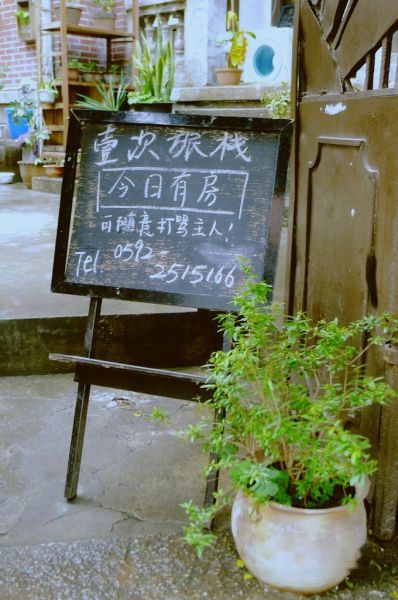 壹次旅栈
今日有房
可随意打骂主人!
Tel 0592-
2515166